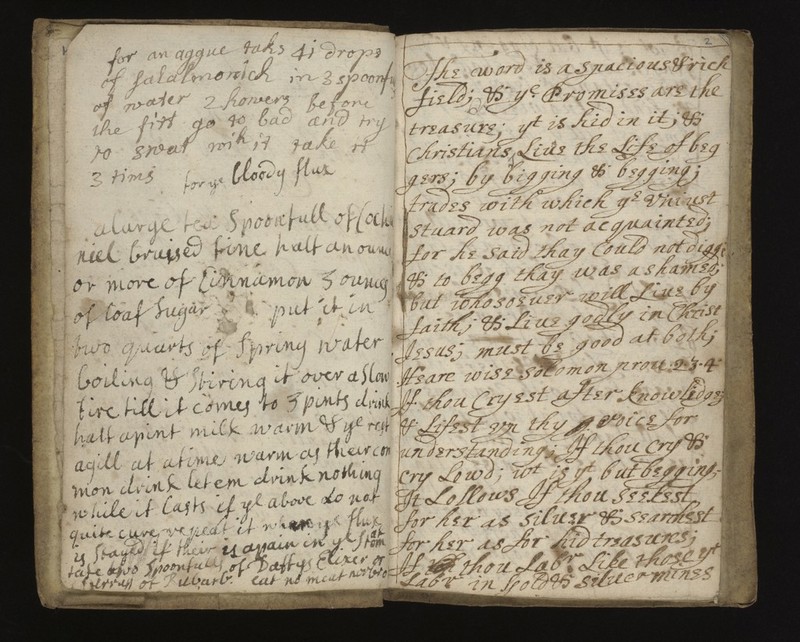 for an aggue take 41 drops
of salalmonick in 3 spoonfu
of water 2 howers before
the fitt go to bad and try
to sweat with it take it
3 tims
for ye bloody flux
a large tea spoonfull of Coche
niel bruised fine half an ounc
or more of Cinnamon 3 ounces
of loaf Sugar put it in
two quarts of Spring water
boiling & Stiring it over a Slow
fire till it comes to 3 pints drink
half a pint milk warm & ye rest
a gill at a time warm as their com
mon drink let em drink nothing
while it lasts if ye above do not
quite cure repeat it when ye flux
is Stayed if their is a pain in ye Stom
take two Spoonfulls of Daffys Elixer or
of Rubarb. eat no meat nor bro
2
The word is a spacious & rich
field; & ye Promises are the
treasure; yt is hid in it; &
Christians Live the Life of beg
gers; by digging & begging;
trades with which ye vniust
stuard was not acquainted;
for he said thay Could not digge
& to begg thay was ashamed;
but whosoever will Live by
faith; & Live godly in Christ
Jesus; must be good at both;
Heare wise solomon prou 2-3-4-
If thou Cryest after knowledge;
& Lifest vp thy voice for
understanding. If thou Cry &
Cry Lowd; wt is yt but begging-
It Lollows If thou seekest
for her as silver & searchest
for her as for hid treasures;
If thou Labr Like those yt
Labr in gold & silver mines